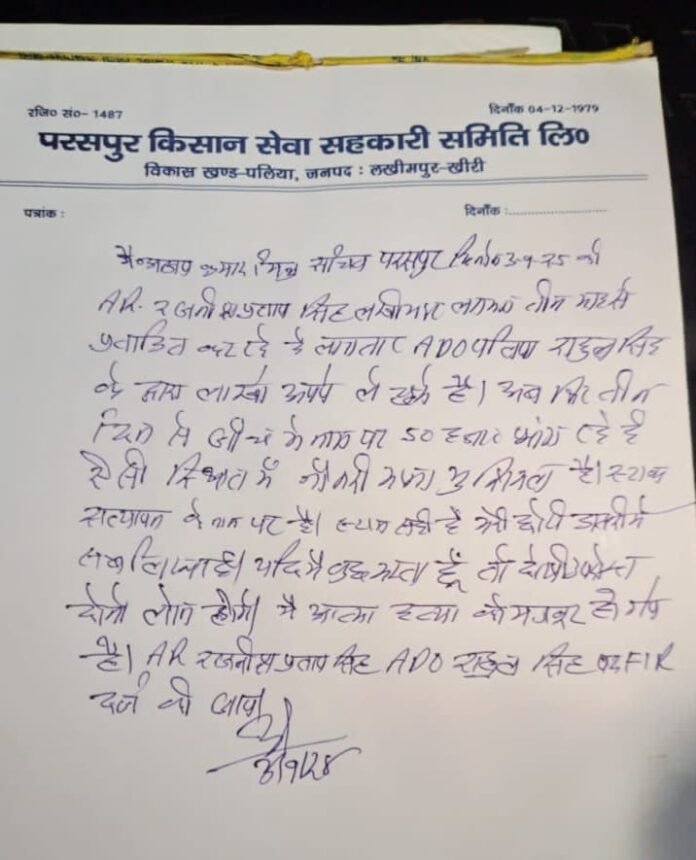 रजि० सं०- 1487
दिनाँक 04-12-1979
परसपुर किसान सेवा सहकारी समिति लि०
विकास खण्ड-पलिया, जनपद : लखीमपुर-खीरी
पत्रांक :
दिनाँक :....................
मै कुमार सचिव परसपुर 3-9-25 को
AR. रजनीश प्रताप सिंह लखीमपुर लगभग तीन माह से
प्रताडित कर रहे है लगातार ADO पलिया राहुल सिंह
के द्वारा लाखो रूपये ले चुके है। अब फिर तीन
दिन से जाँच के नाम पर 50 हजार मांग रहे है
ऐसी स्थित में नौकरी करना मुश्किल है। स्टाक
सत्यापन के नाम पर है। स्टाक सही है मेरी छोटी डायरी मे
सब लिखा है। यदि मै कुछ करता हूँ तो दोषी
दोनो लोग होगे। मै आत्म हत्या को मजबूर हो गय
है। AR रजनीश प्रताप सिंह ADO राहुल सिंह पर FIR
दर्ज की जाय।